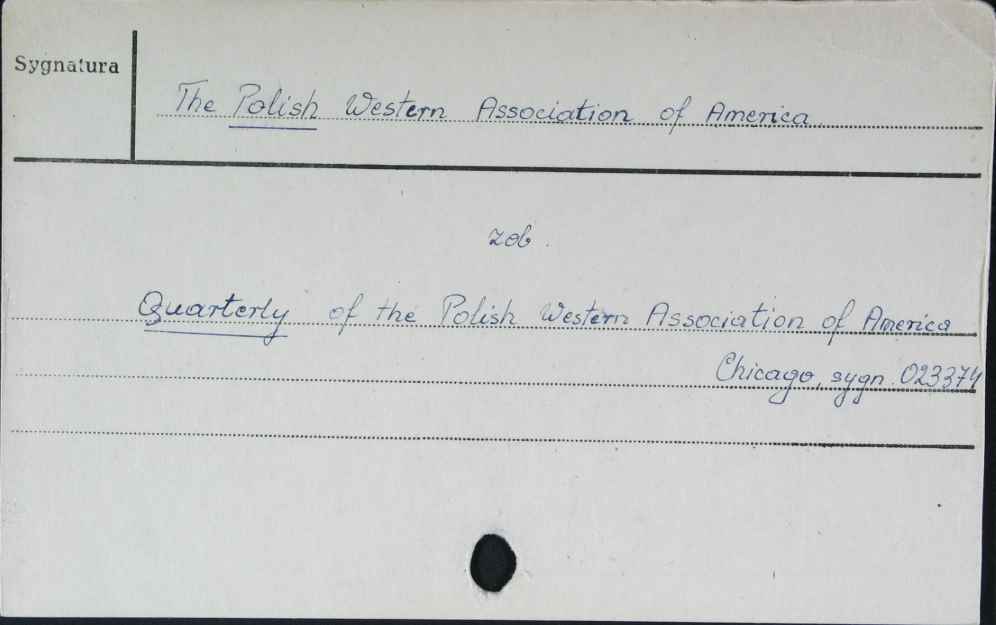 Sygnatura
The Polish Western Association of America
zob.
Quarterly of the Polish Western Association of America
Chicago, sygn. 023374